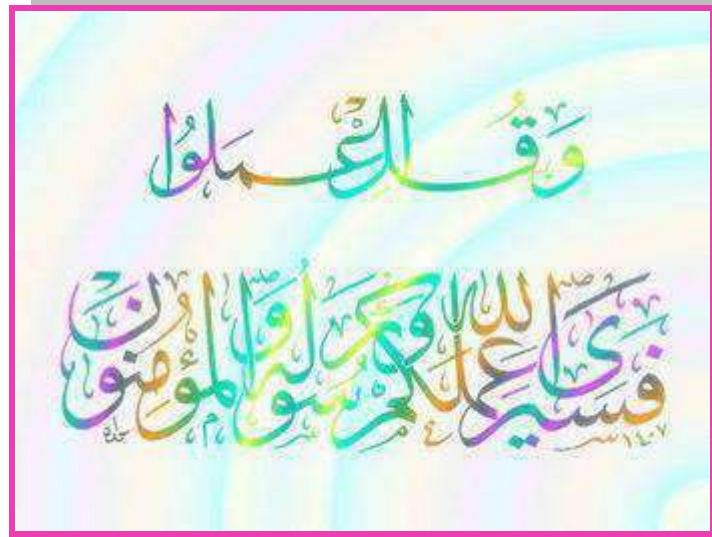 وَقُلِ اعْمَلُوا
فَسَيَرَى اللَّهُ عَمَلَكُمْ وَرَسُولُهُ وَالْمُؤْمِنُونَ
١٤٠٧